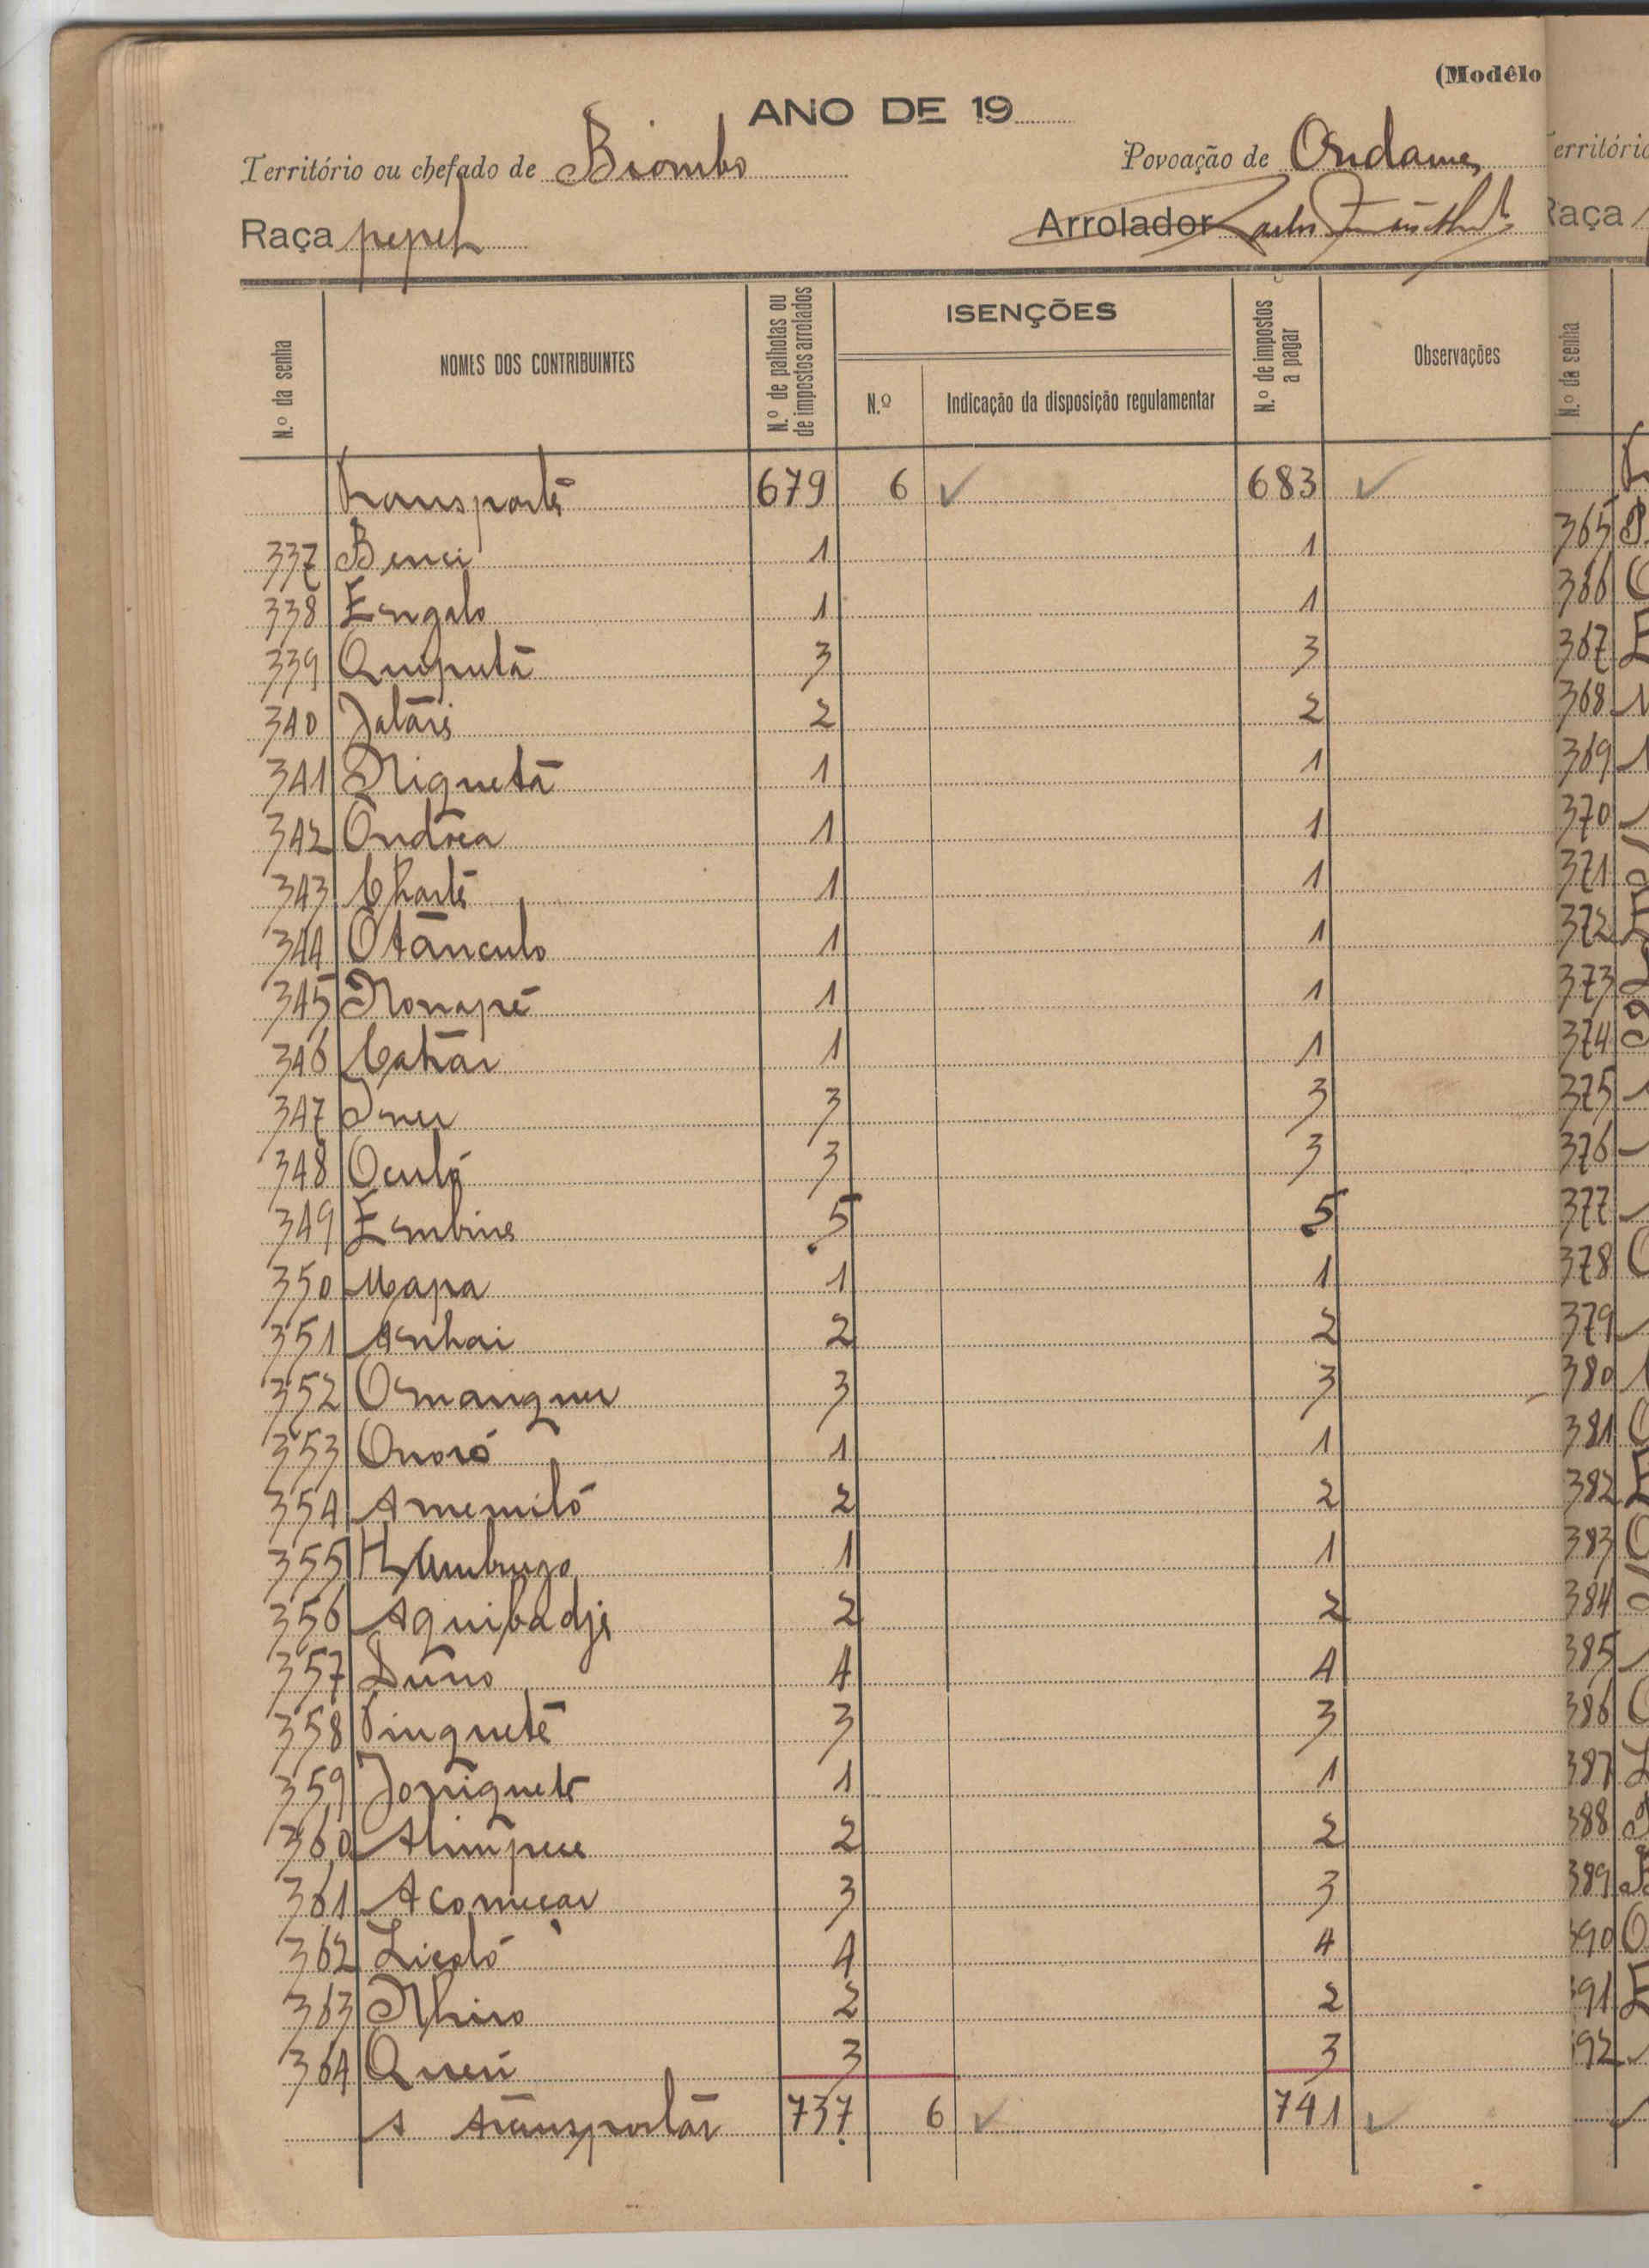 (Modêlo
ANO DE 19
Território ou chefado de Biombo Povoação de Ondame
Raça pepel Arrolador
N.º da senha NOMES DOS CONTRIBUINTES N.º de palhotas ou de impostos arrolados ISENÇÕES N.º Indicação da disposição regulamentar N.º de impostos a pagar Observações
Transporte 679 6 ✓ 683 ✓
337 Benci 1 1
338 Engalo 1 1
339 Quiputã 3 3
340 Jalãri 2 2
341 Niquetã 1 1
342 Ondôca 1 1
343 1 1
344 Otãnculo 1 1
345 Nonapé 1 1
346 Catrãr 1 1
347 3 3
348 Oculó 3 3
349 5 5
350 Mapa 1 1
351 Anhai 2 2
352 Omanque 3 3
353 Onoró 1 1
354 Amemiló 2 2
355 Hamburgo 1 1
356 Aquibadji 2 2
357 Duno 4 4
358 Tinquetê 3 3
359 1 1
360 2 2
361 Acomeçar 3 3
362 Licoló 4 4
363 Nhiro 2 2
364 3 3
A transportar 737 6 ✓ 741 ✓
erritório
Raça
N.º da senha
365
366
367
368
369
370
371
372
373
374
375
376
377
378
379
380
381
382
383
384
385
386
387
388
389
390
391
92